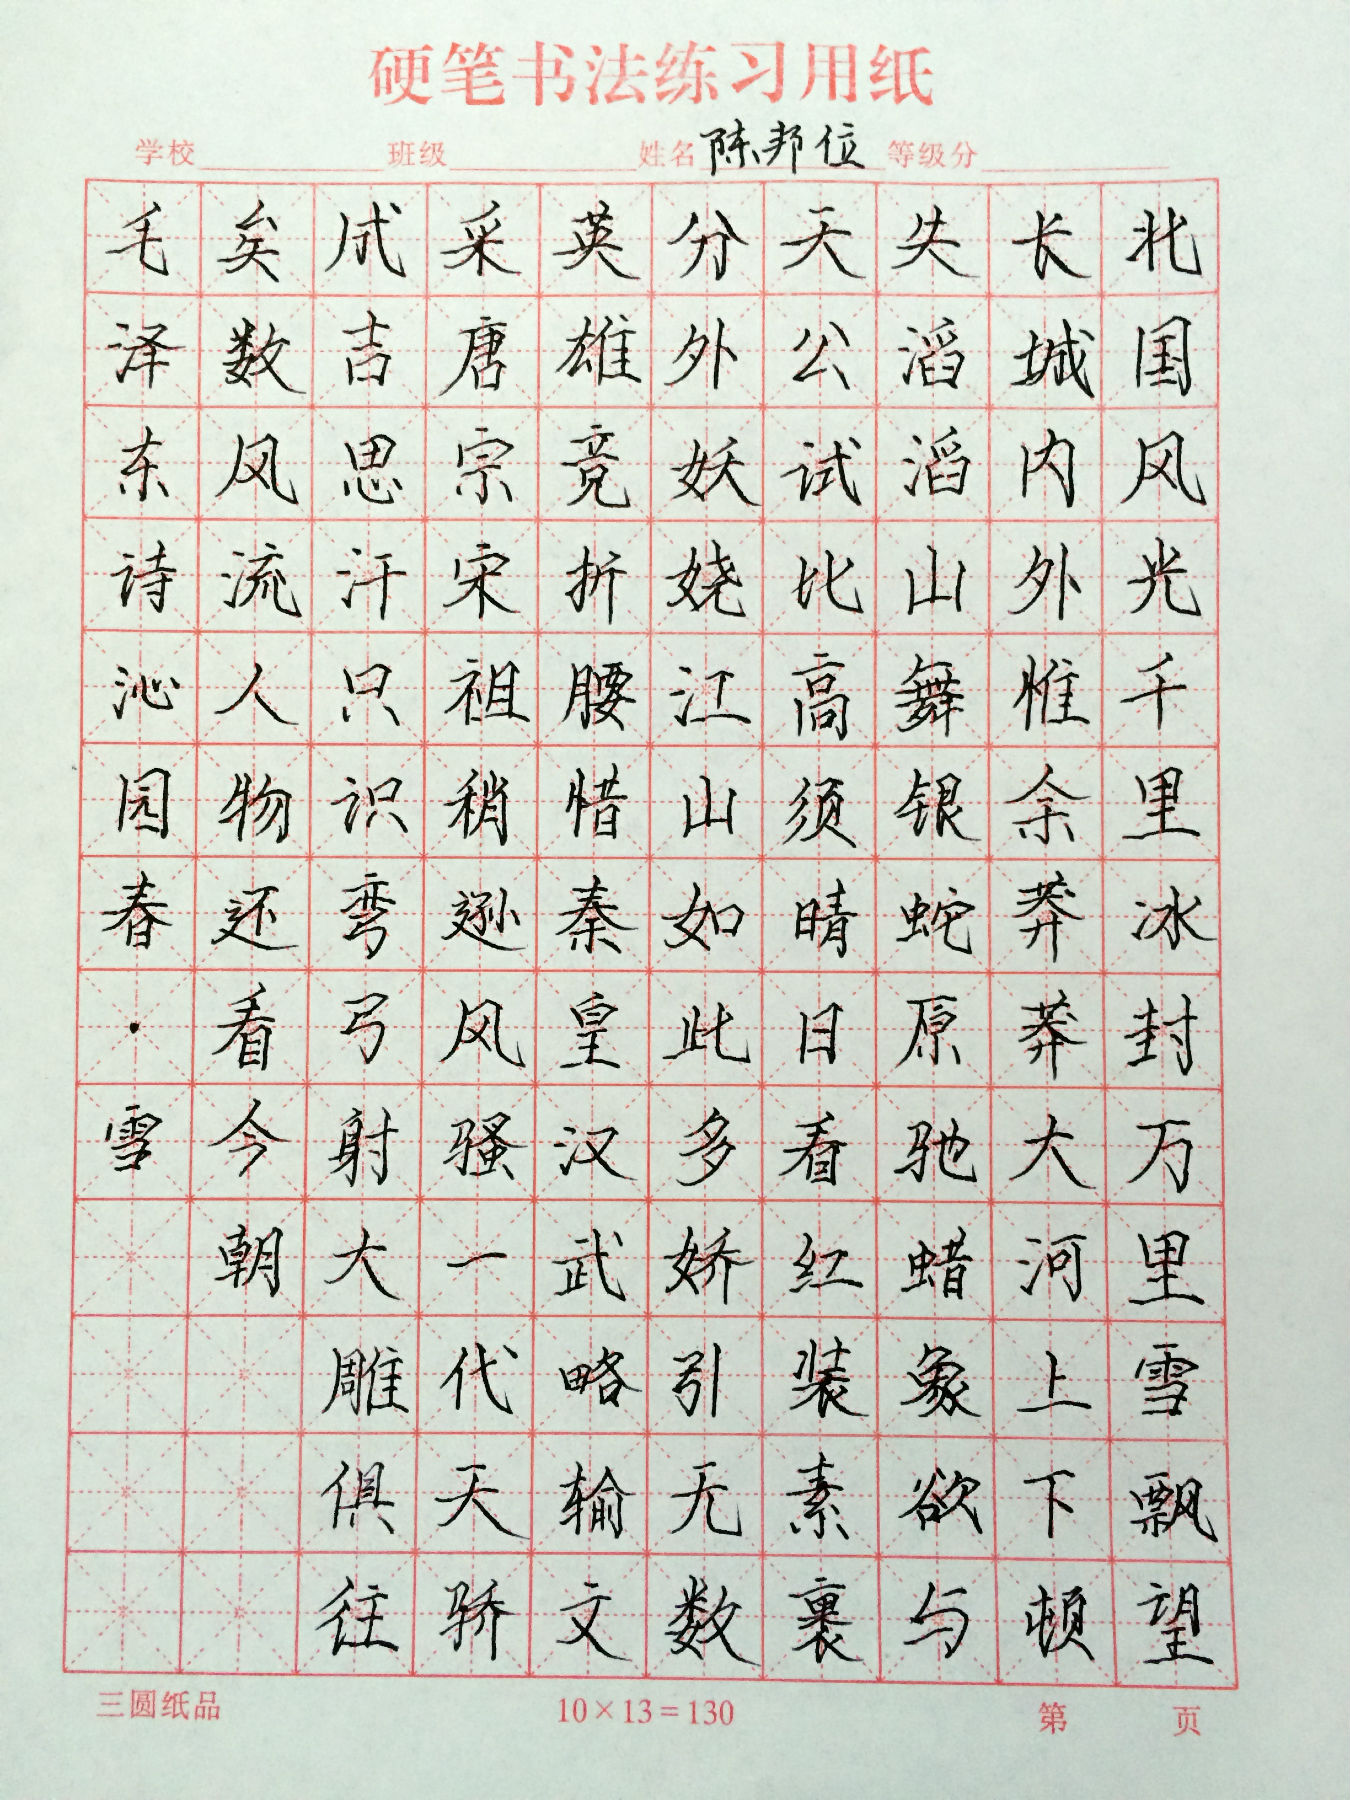 硬笔书法练习用纸
学校 班级 姓名 陈邦位 等级分
北国风光千里冰封万里雪飘望
长城内外惟余莽莽大河上下顿
失滔滔山舞银蛇原驰蜡象欲与
天公试比高须晴日看红装素裹
分外妖娆江山如此多娇引无数
英雄竞折腰惜秦皇汉武略输文
采唐宗宋祖稍逊风骚一代天骄
成吉思汗只识弯弓射大雕俱往
矣数风流人物还看今朝
毛泽东诗沁园春·雪
三圆纸品 10×13=130 第 页